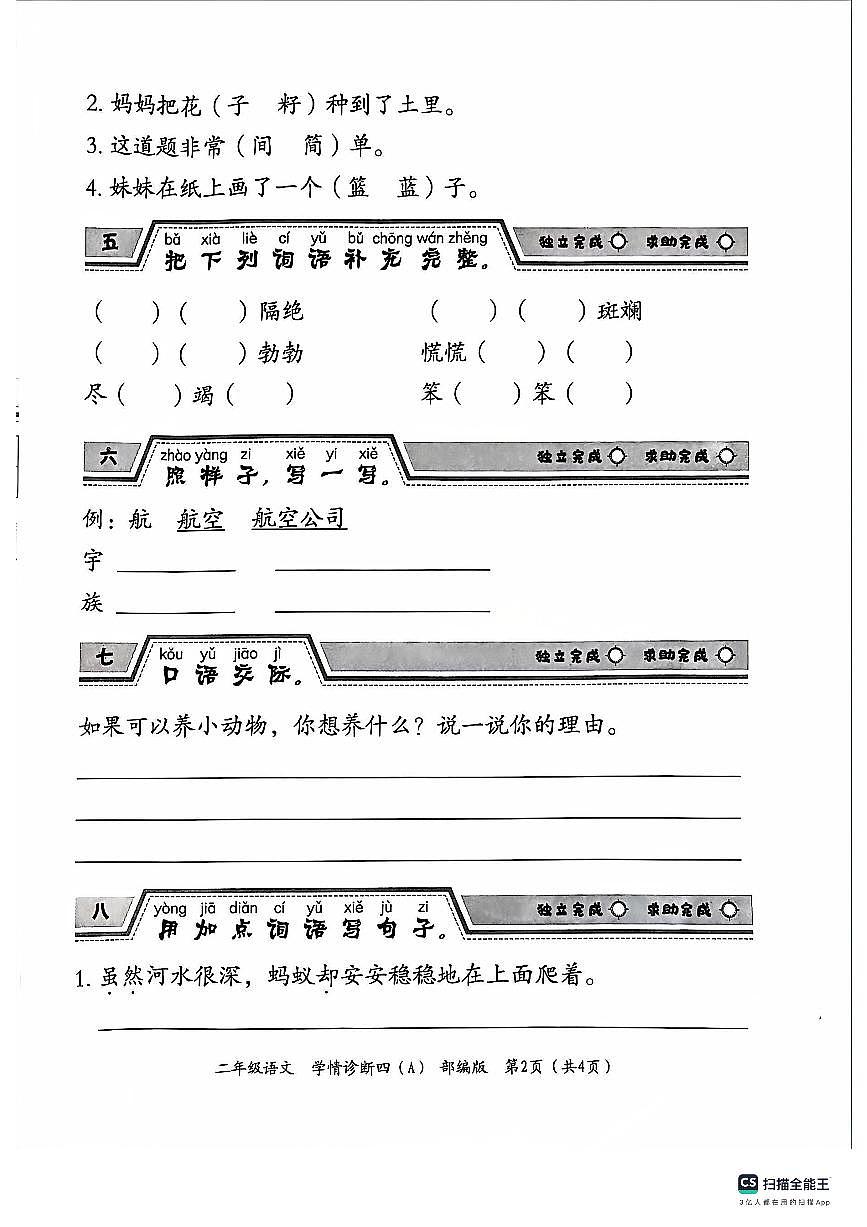 2. 妈妈把花（子 籽）种到了土里。
3. 这道题非常（间 简）单。
4. 妹妹在纸上画了一个（篮 蓝）子。
bǎ xià liè cí yǔ bǔ chōng wán zhěng
五 把下列词语补充完整。 独立完成 求助完成
（ ）（ ）隔绝 （ ）（ ）斑斓
（ ）（ ）勃勃 慌慌（ ）（ ）
尽（ ）竭（ ） 笨（ ）笨（ ）
zhào yàng zi xiě yi xiě
六 照样子，写一写。 独立完成 求助完成
例：航 航空 航空公司
宇
族
kǒu yǔ jiāo jì
七 口语交际。 独立完成 求助完成
如果可以养小动物，你想养什么？说一说你的理由。
yòng jiā diǎn cí yǔ xiě jù zi
八 用加点词语写句子。 独立完成 求助完成
1. 虽然河水很深，蚂蚁却安安稳稳地在上面爬着。
二年级语文 学情诊断四（A） 部编版 第2页（共4页）
CS 扫描全能王
3亿人都在用的扫描App